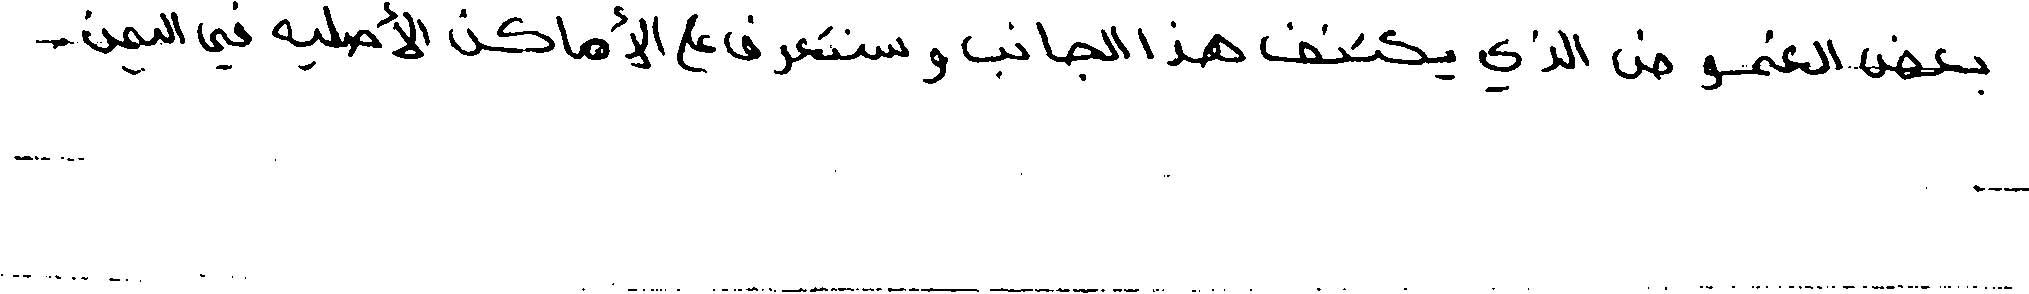 بعض الغموض الذي يكتنف هذا الجانب وسنتعرف على الأماكن الأصليه في اليمن -